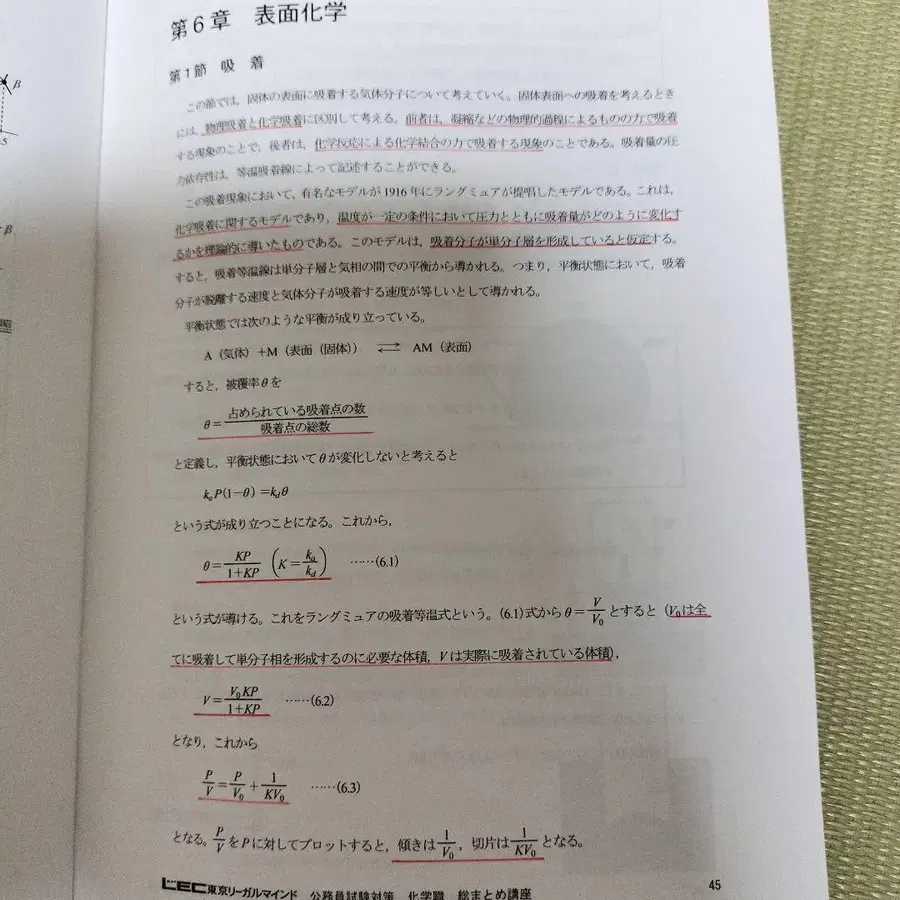 第6章 表面化学
第1節 吸着
この節では,固体の表面に吸着する気体分子について考えていく。固体表面への吸着を考えるとき
には,物理吸着と化学吸着に区別して考える。前者は,凝縮などの物理的過程によるものの力で吸着
する現象のことで,後者は,化学反応による化学結合の力で吸着する現象のことである。吸着量の圧
力依存性は,等温吸着線によって記述することができる。
この吸着現象において,有名なモデルが1916年にラングミュアが提唱したモデルである。これは,
化学吸着に関するモデルであり,温度が一定の条件において圧力とともに吸着量がどのように変化す
るかを理論的に導いたものである。このモデルは,吸着分子が単分子層を形成していると仮定する。
すると,吸着等温線は単分子層と気相の間での平衡から導かれる。つまり,平衡状態において,吸着
分子が脱離する速度と気体分子が吸着する速度が等しいとして導かれる。
平衡状態では次のような平衡が成り立っている。
A(気体)+M(表面(固体)) ⇄ AM(表面)
すると,被覆率θを
θ=占められている吸着点の数/吸着点の総数
と定義し,平衡状態においてθが変化しないと考えると
kₐP(1−θ)=k_dθ
という式が成り立つことになる。これから,
θ=KP/(1+KP) (K=kₐ/k_d) ……(6.1)
という式が導ける。これをラングミュアの吸着等温式という。(6.1)式からθ=V/V₀とすると(V₀は全
てに吸着して単分子相を形成するのに必要な体積,Vは実際に吸着されている体積),
V=V₀KP/(1+KP) ……(6.2)
となり,これから
P/V=P/V₀+1/KV₀ ……(6.3)
となる。P/VをPに対してプロットすると,傾きは1/V₀,切片は1/KV₀となる。
LEC東京リーガルマインド 公務員試験対策 化学職 総まとめ講座
45
B
S
B